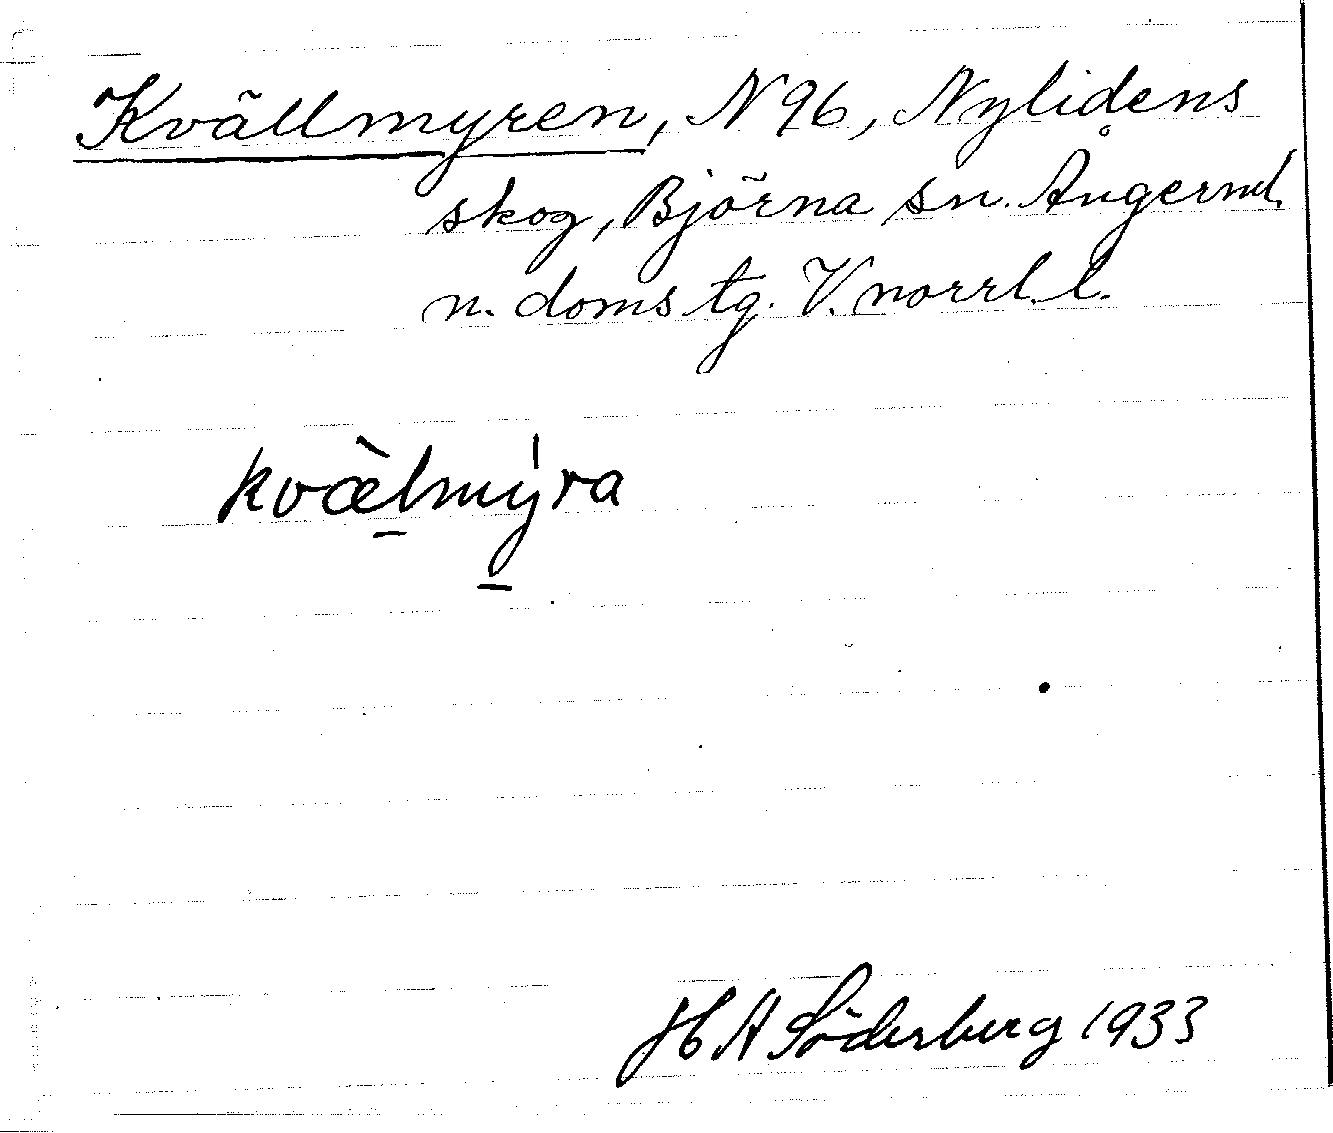 Kvällmyren, N96, Nylidens
skog, Björna sn. Ångerml.
n. doms tg. V.norrl.l.
kvæ̀l̠mý̠ra
H A Söderberg 1933